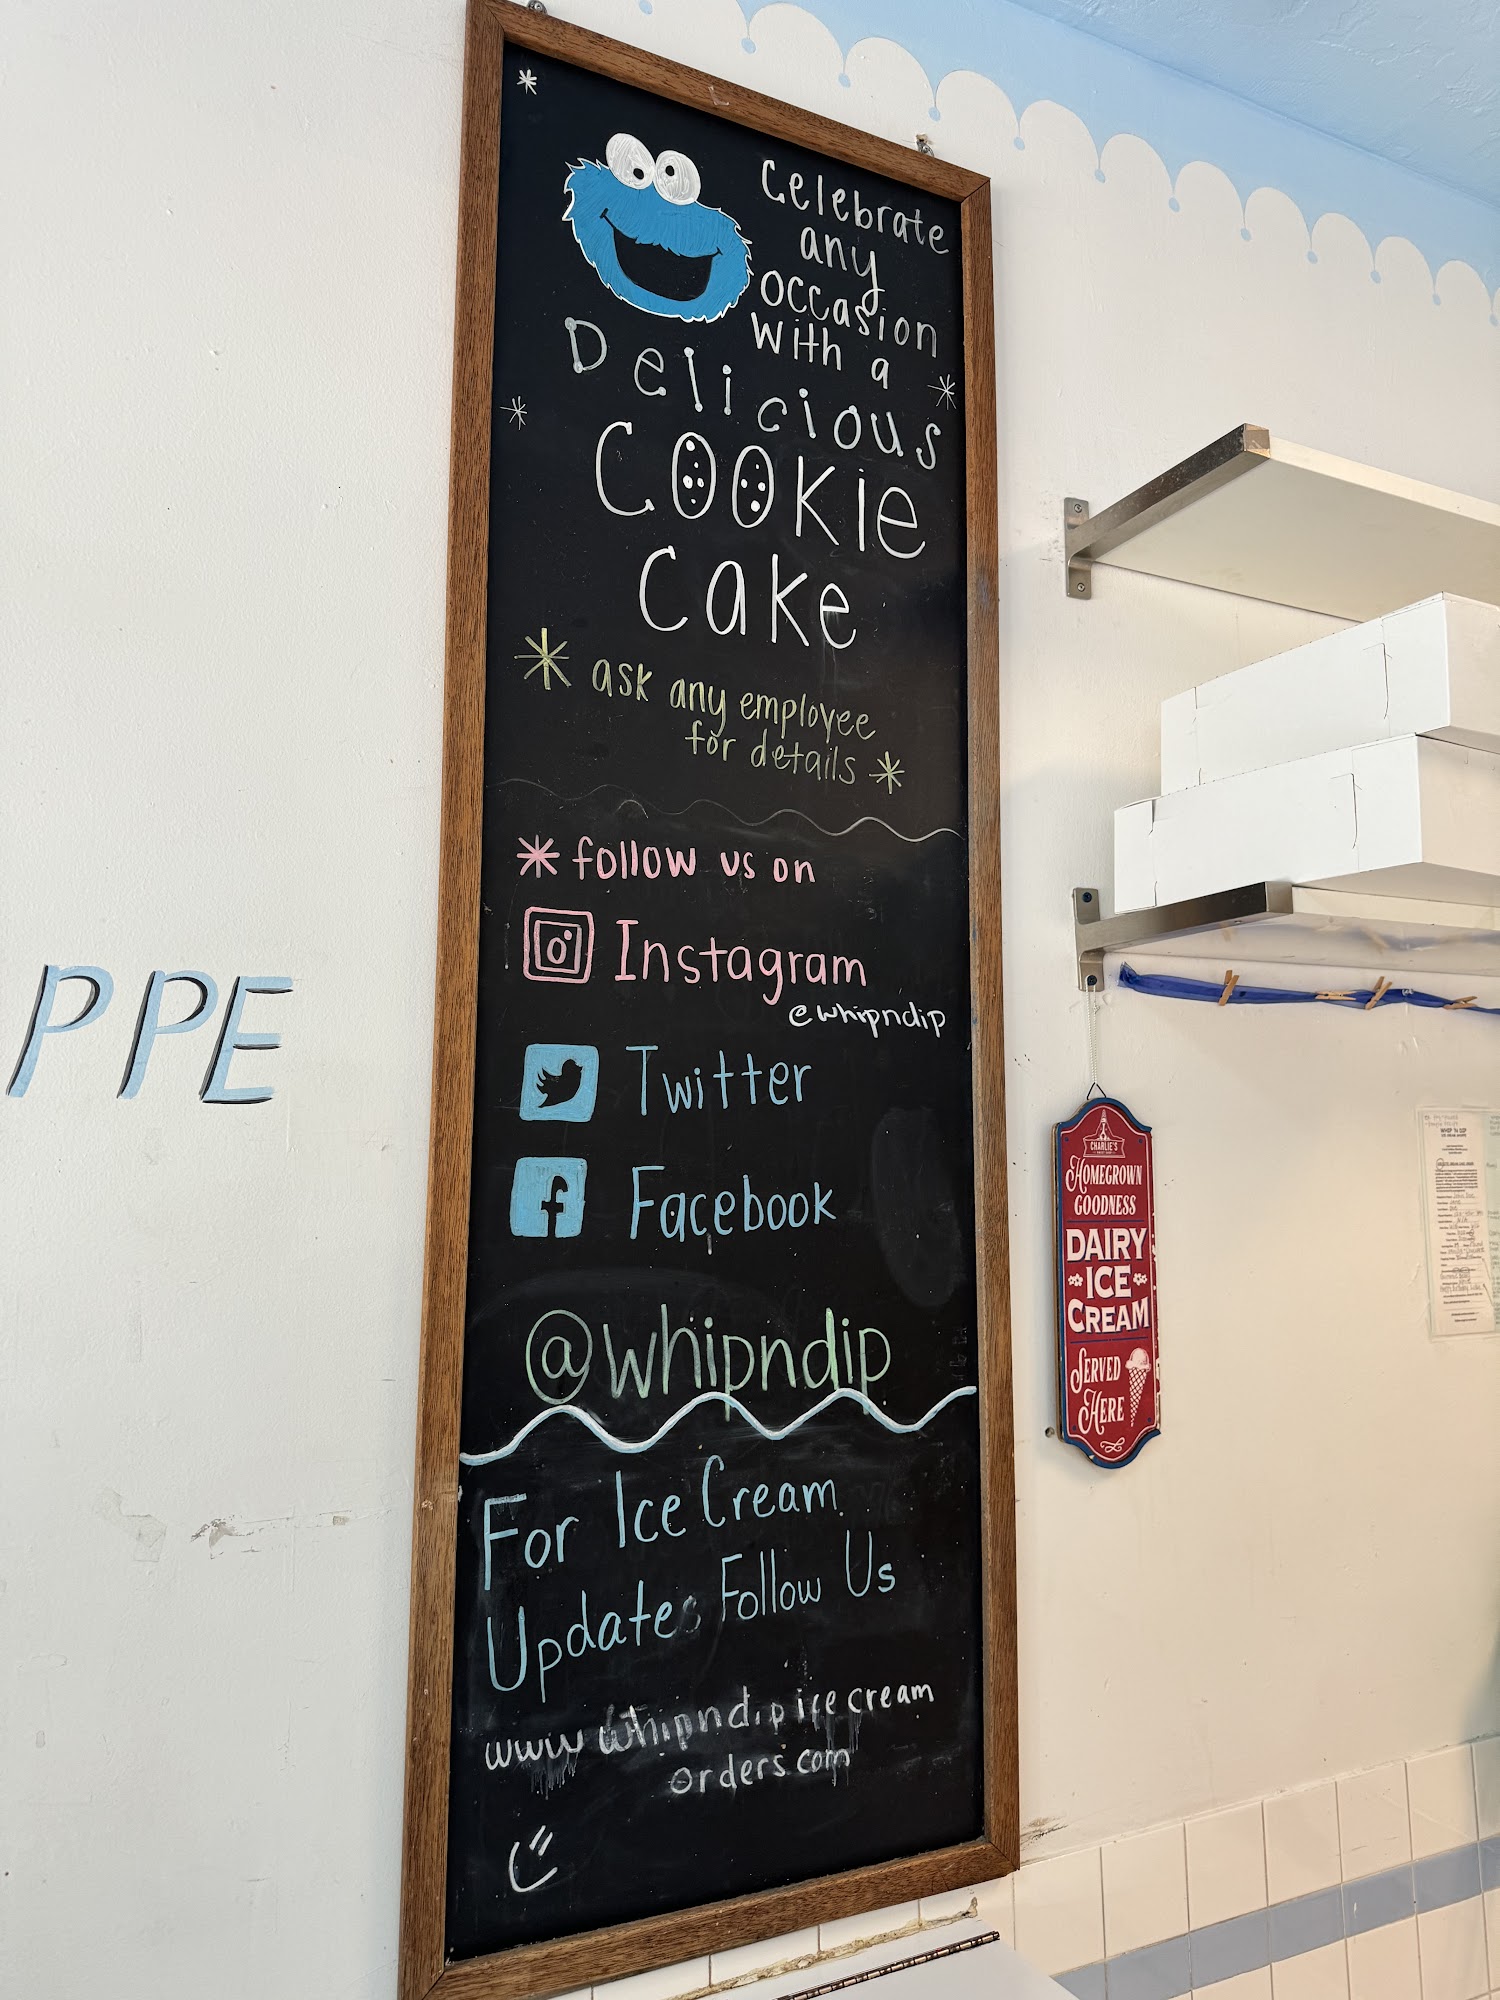 Celebrate
any
occasion
with a
Delicious
COOKie
cake
ask any employee
for details
follow us on
Instagram
@whipndip
Twitter
Facebook
@whipndip
For Ice Cream
Updates Follow Us
www.whipndipicecream
orders.com
PPE
CHARLIE'S
HOMEGROWN
GOODNESS
DAIRY
ICE
CREAM
SERVED
HERE
WHIP 'N DIP